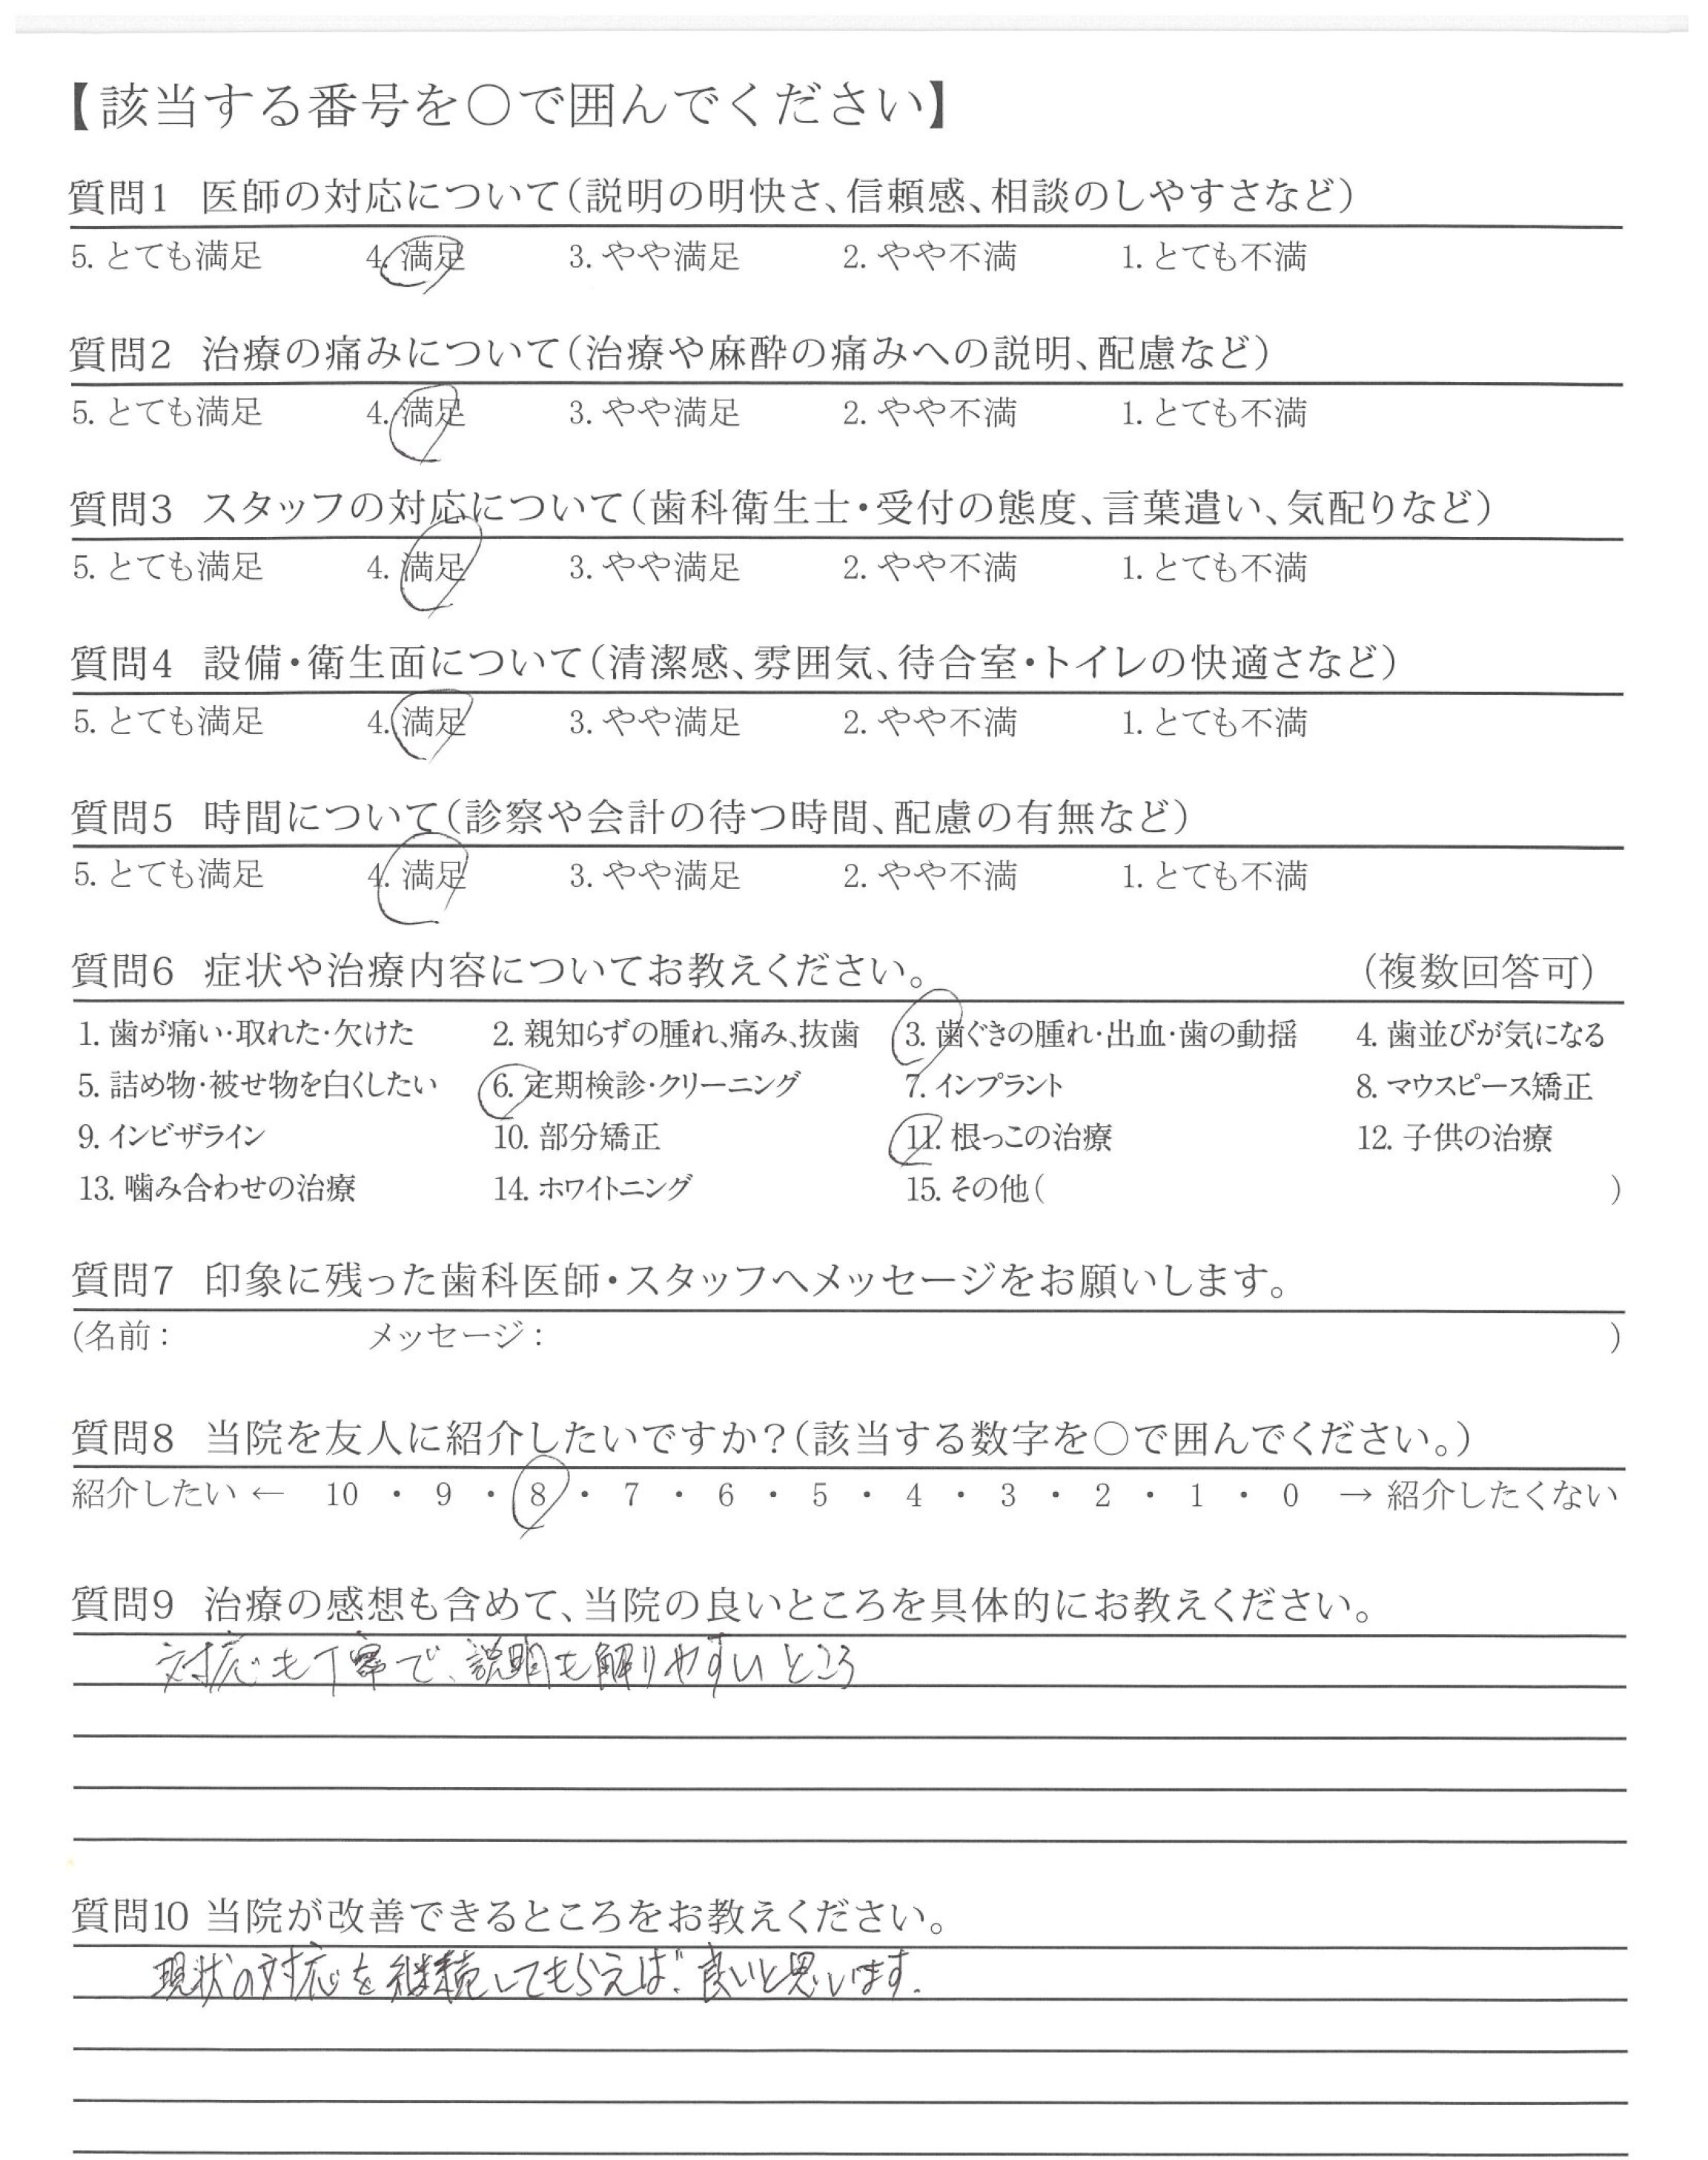 【該当する番号を○で囲んでください】
質問1 医師の対応について(説明の明快さ、信頼感、相談のしやすさなど)
5. とても満足 4. 満足 3. やや満足 2. やや不満 1. とても不満
質問2 治療の痛みについて(治療や麻酔の痛みへの説明、配慮など)
5. とても満足 4. 満足 3. やや満足 2. やや不満 1. とても不満
質問3 スタッフの対応について(歯科衛生士・受付の態度、言葉遣い、気配りなど)
5. とても満足 4. 満足 3. やや満足 2. やや不満 1. とても不満
質問4 設備・衛生面について(清潔感、雰囲気、待合室・トイレの快適さなど)
5. とても満足 4. 満足 3. やや満足 2. やや不満 1. とても不満
質問5 時間について(診察や会計の待つ時間、配慮の有無など)
5. とても満足 4. 満足 3. やや満足 2. やや不満 1. とても不満
質問6 症状や治療内容についてお教えください。 (複数回答可)
1. 歯が痛い・取れた・欠けた 2. 親知らずの腫れ、痛み、抜歯 3. 歯ぐきの腫れ・出血・歯の動揺 4. 歯並びが気になる
5. 詰め物・被せ物を白くしたい 6. 定期検診・クリーニング 7. インプラント 8. マウスピース矯正
9. インビザライン 10. 部分矯正 11. 根っこの治療 12. 子供の治療
13. 噛み合わせの治療 14. ホワイトニング 15. その他( )
質問7 印象に残った歯科医師・スタッフへメッセージをお願いします。
(名前: メッセージ: )
質問8 当院を友人に紹介したいですか?(該当する数字を○で囲んでください。)
紹介したい ← 10 ・ 9 ・ 8 ・ 7 ・ 6 ・ 5 ・ 4 ・ 3 ・ 2 ・ 1 ・ 0 → 紹介したくない
質問9 治療の感想も含めて、当院の良いところを具体的にお教えください。
対応も丁寧で、説明も解りやすいところ
質問10 当院が改善できるところをお教えください。
現状の対応を継続してもらえば、良いと思います。